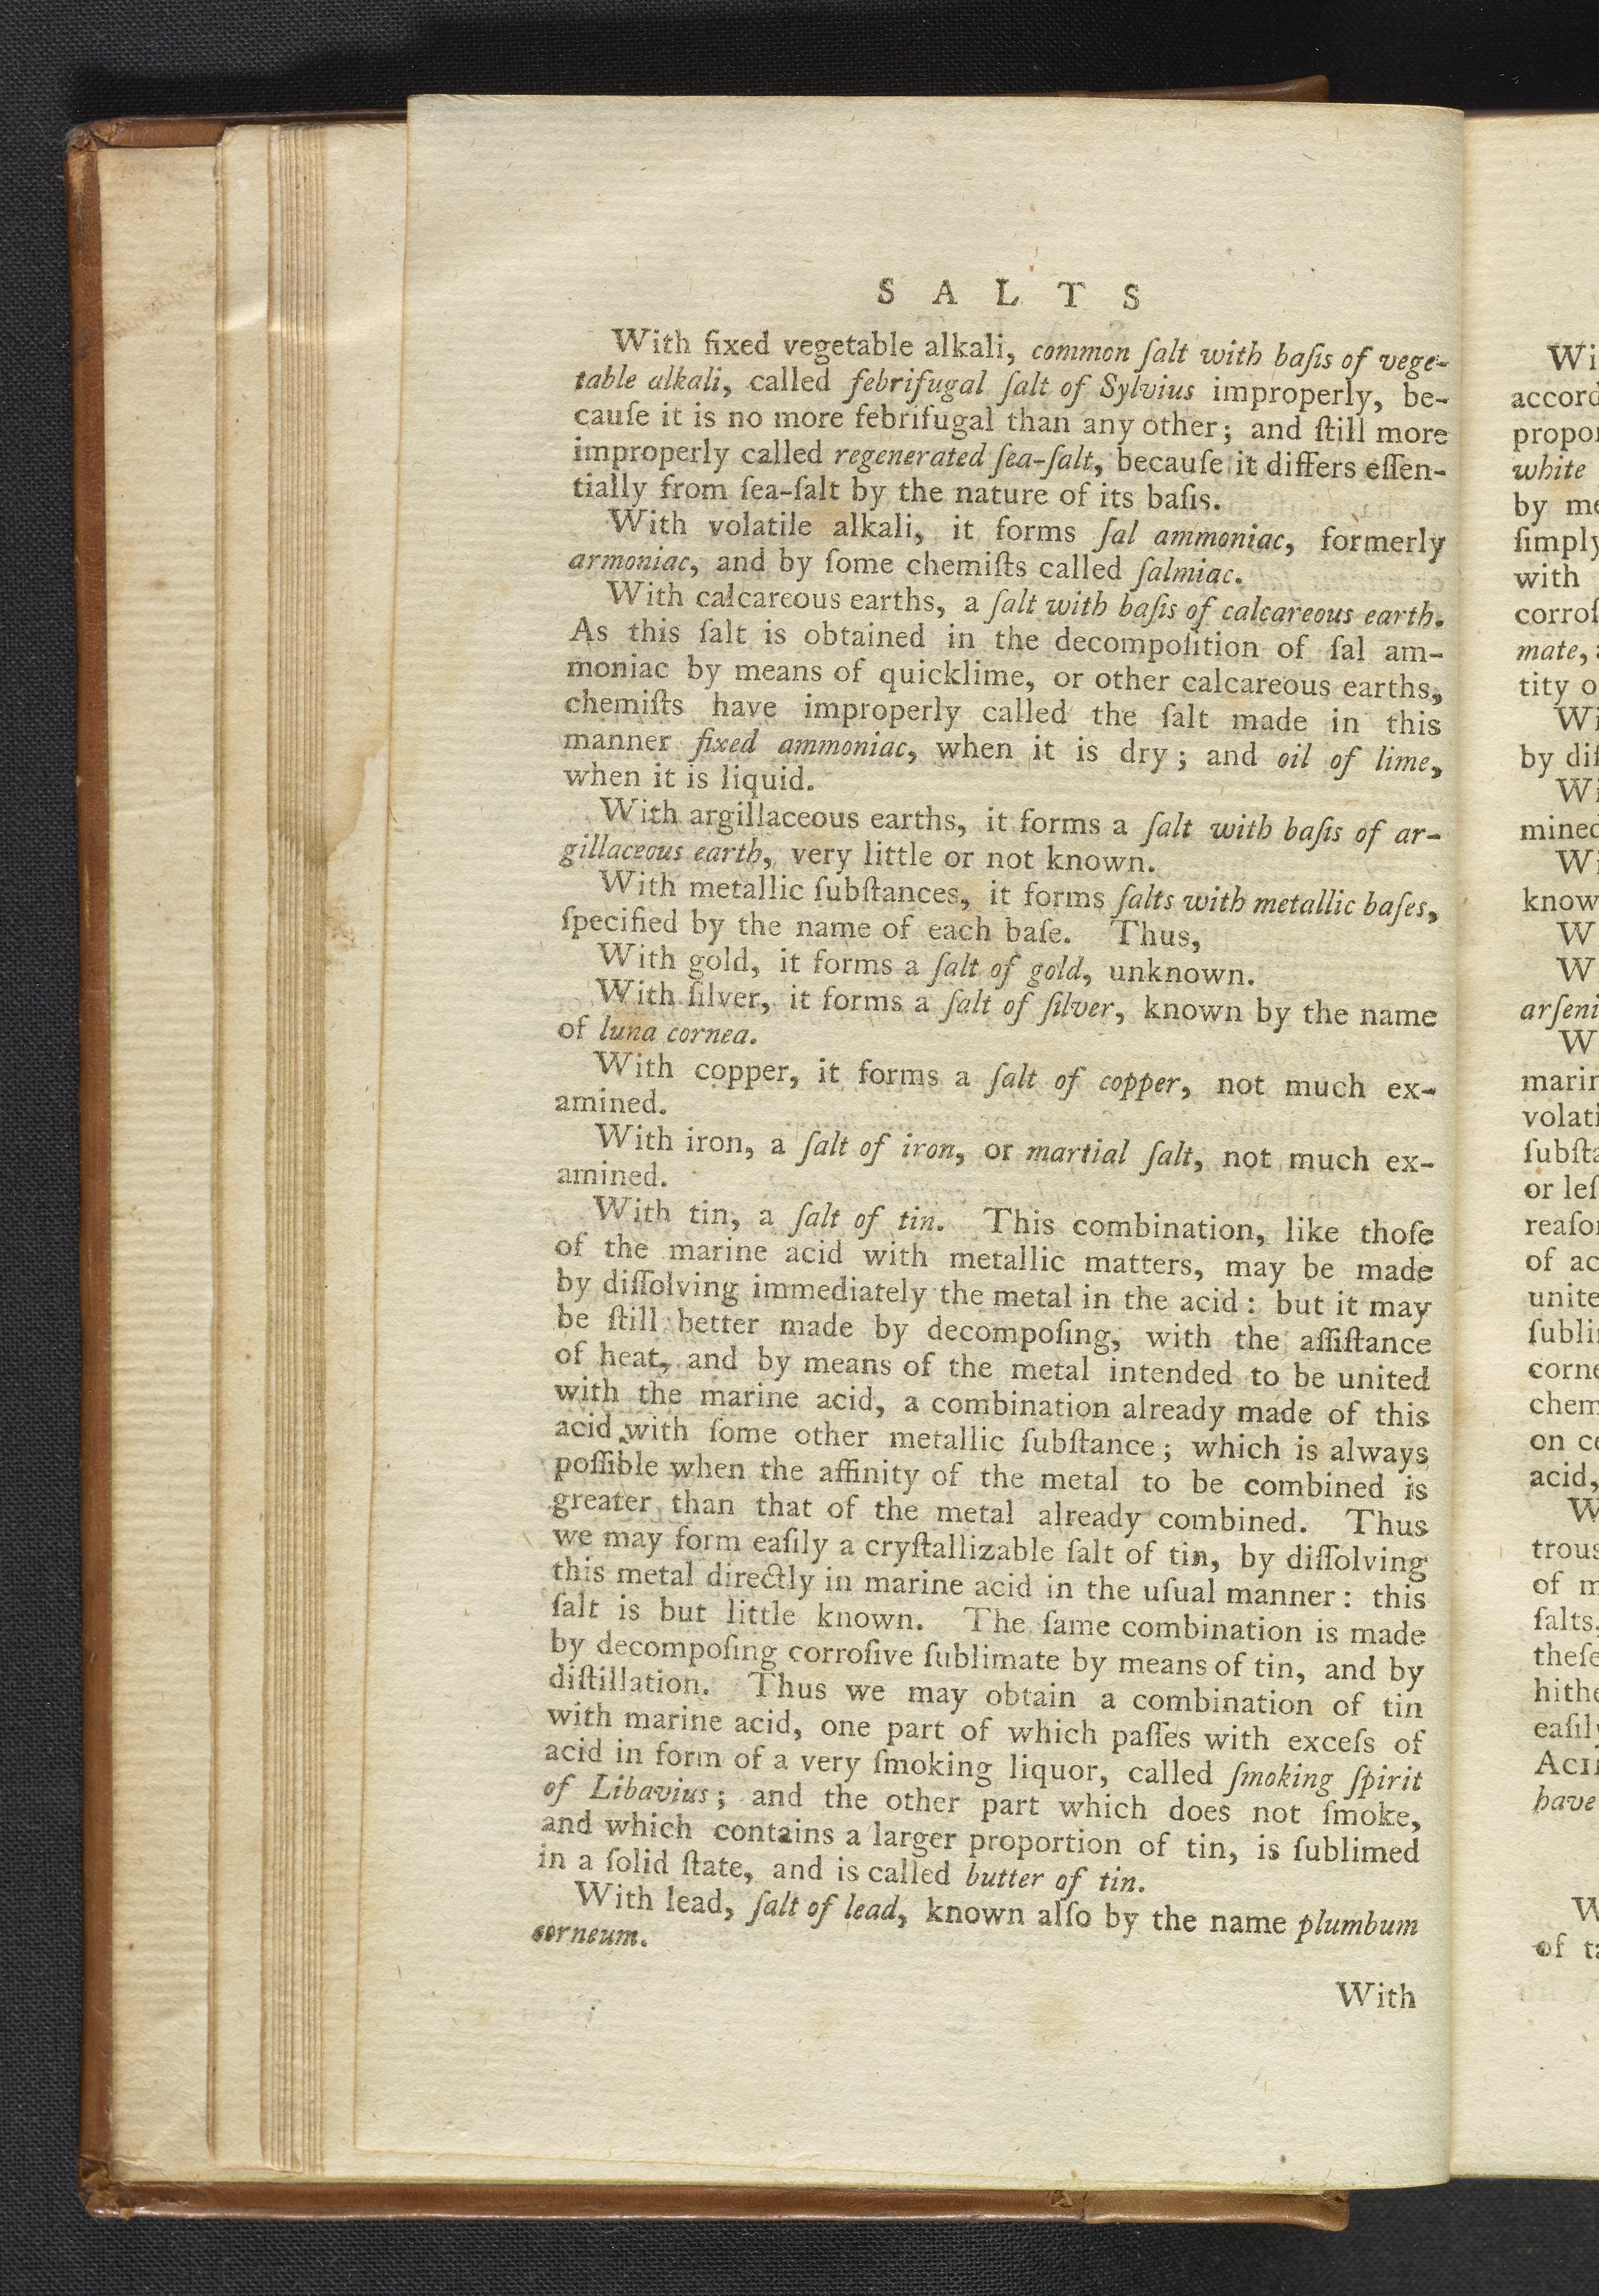 S A L T S
With fixed vegetable alkali, common ſalt with baſis of vege-
table alkali, called febrifugal ſalt of Sylvius improperly, be-
cauſe it is no more febrifugal than any other; and ſtill more
improperly called regenerated ſea-ſalt, becauſe it differs eſſen-
tially from ſea-ſalt by the nature of its baſis.
With volatile alkali, it forms ſal ammoniac, formerly
armoniac, and by ſome chemiſts called ſalmiac.
With calcareous earths, a ſalt with baſis of calcareous earth.
As this ſalt is obtained in the decompoſition of ſal am-
moniac by means of quicklime, or other calcareous earths,
chemiſts have improperly called the ſalt made in this
manner fixed ammoniac, when it is dry; and oil of lime,
when it is liquid.
With argillaceous earths, it forms a ſalt with baſis of ar-
gillaceous earth, very little or not known.
With metallic ſubſtances, it forms ſalts with metallic baſes,
ſpecified by the name of each baſe. Thus,
With gold, it forms a ſalt of gold, unknown.
With ſilver, it forms a ſalt of ſilver, known by the name
of luna cornea.
With copper, it forms a ſalt of copper, not much ex-
amined.
With iron, a ſalt of iron, or martial ſalt, not much ex-
amined.
With tin, a ſalt of tin. This combination, like thoſe
of the marine acid with metallic matters, may be made
by diſſolving immediately the metal in the acid: but it may
be ſtill better made by decompoſing, with the aſſiſtance
of heat, and by means of the metal intended to be united
with the marine acid, a combination already made of this
acid with ſome other metallic ſubſtance; which is always
poſſible when the affinity of the metal to be combined is
greater than that of the metal already combined. Thus
we may form eaſily a cryſtallizable ſalt of tin, by diſſolving
this metal directly in marine acid in the uſual manner: this
ſalt is but little known. The ſame combination is made
by decompoſing corroſive ſublimate by means of tin, and by
diſtillation. Thus we may obtain a combination of tin
with marine acid, one part of which paſſes with exceſs of
acid in form of a very ſmoking liquor, called ſmoking ſpirit
of Libavius; and the other part which does not ſmoke,
and which contains a larger proportion of tin, is ſublimed
in a ſolid ſtate, and is called butter of tin.
With lead, ſalt of lead, known alſo by the name plumbum
corneum.
With
Wi
accord
propor
white
by me
ſimply
with
corroſ
mate,
tity o
Wi
by diſ
Wi
mined
Wi
know
W
W
arſeni
W
marin
volati
ſubſta
or leſ
reaſon
of ac
unite
ſubli
corne
chem
on ce
acid,
W
trous
of m
ſalts,
theſe
hithe
eaſily
ACI
have
W
of ta